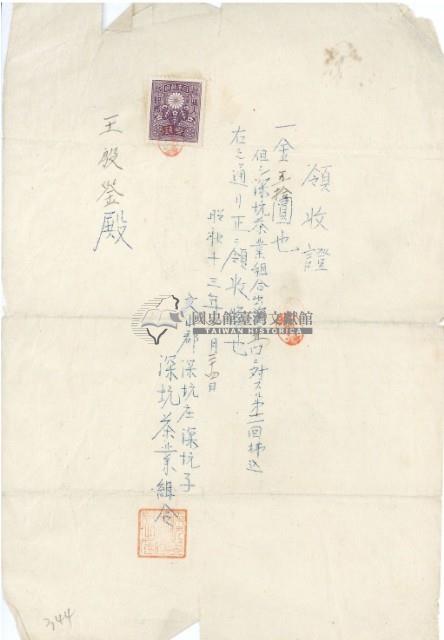 領收證
一金五拾圓也
但シ深坑茶業組合出 口ニ對スル第一回拂込
右之通リ正ニ領收 也
昭和十三年 月 日
文山郡深坑庄深坑子
深坑茶業組合
王 殿
國史館臺灣文獻館
TAIWAN HISTORICA
344